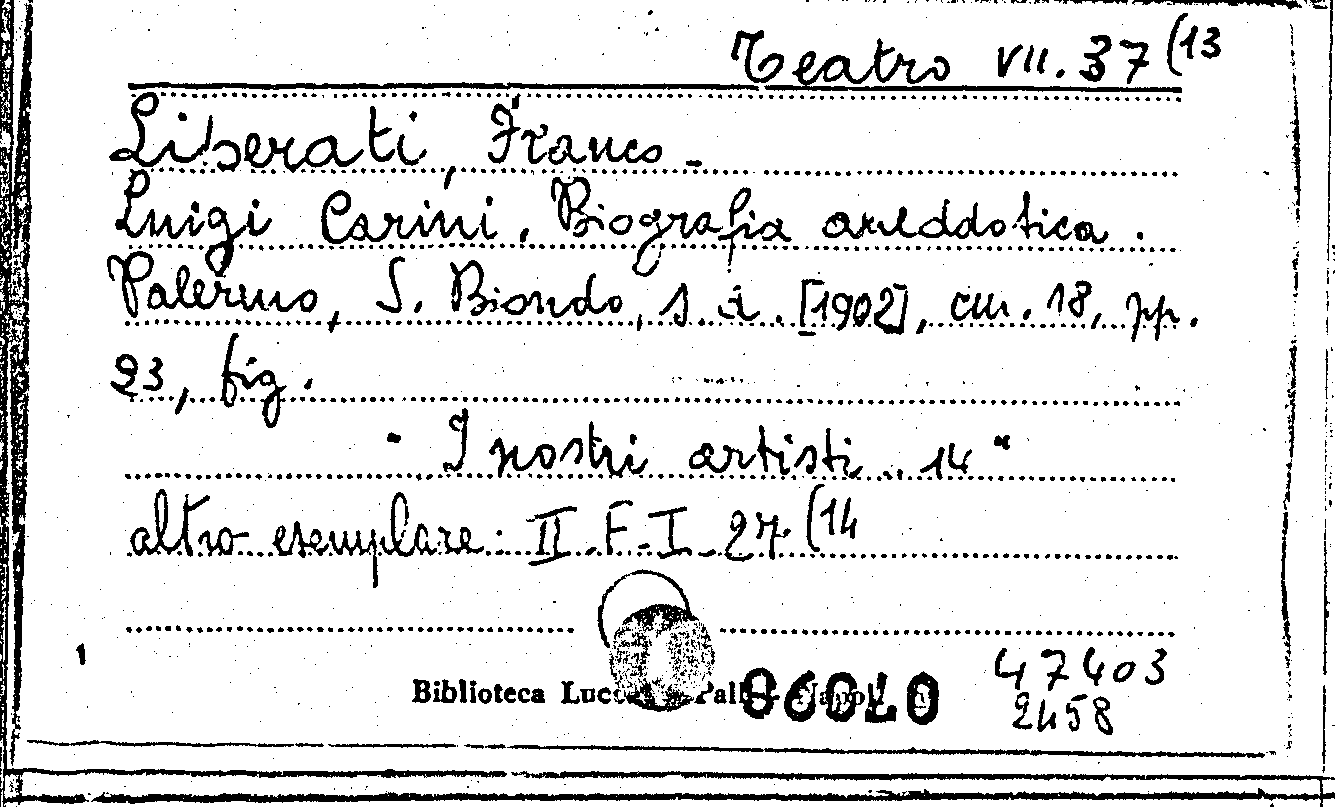 Teatro VII. 37 (13
Liberati, Franco -
Luigi Carini. Biografia aneddotica.
Palermo, S. Biondo, s. d. [1902], cm. 18, pp.
23, fig.
" I nostri artisti .. 14 "
altro esemplare: II. F. I. 27. (14
1
47403
Biblioteca
2458